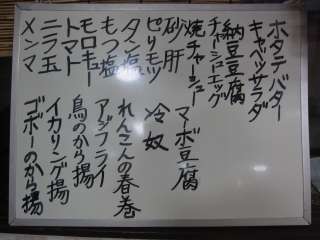 ホタテバター
キャベツサラダ
納豆豆腐
チャーシューエッグ
焼チャーシュー
マーボ豆腐
砂肝
冷奴
ピリモツ
れんこんの春巻
タン塩
アジフライ
もつ塩
鳥のから揚
モロキュー
イカリング揚
トマト
ゴボーのから揚
ニラ玉
メンマ